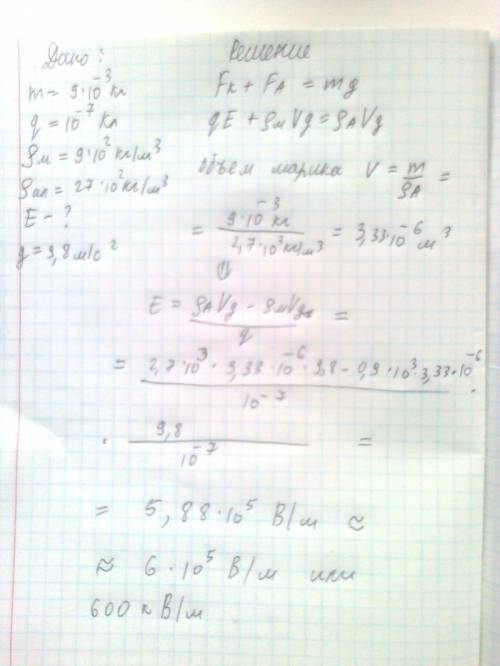 Дано:
m = 9·10⁻³ кг
q = 10⁻⁷ Кл
ρм = 9·10² кг/м³
ρал = 27·10² кг/м³
E – ?
g = 9,8 м/с²
Решение
Fк + FA = mg
qE + ρмVg = ρAVg
Объем шарика V = m/ρA =
= 9·10⁻³ кг / 2,7·10³ кг/м³ = 3,33·10⁻⁶ м³
E = (ρAVg – ρмVg)/q =
= (2,7·10³ · 3,33·10⁻⁶ · 9,8 – 0,9·10³ · 3,33·10⁻⁶)/10⁻⁷ ·
· 9,8/10⁻⁷ =
= 5,88·10⁵ В/м ≈
≈ 6·10⁵ В/м или
600 кВ/м